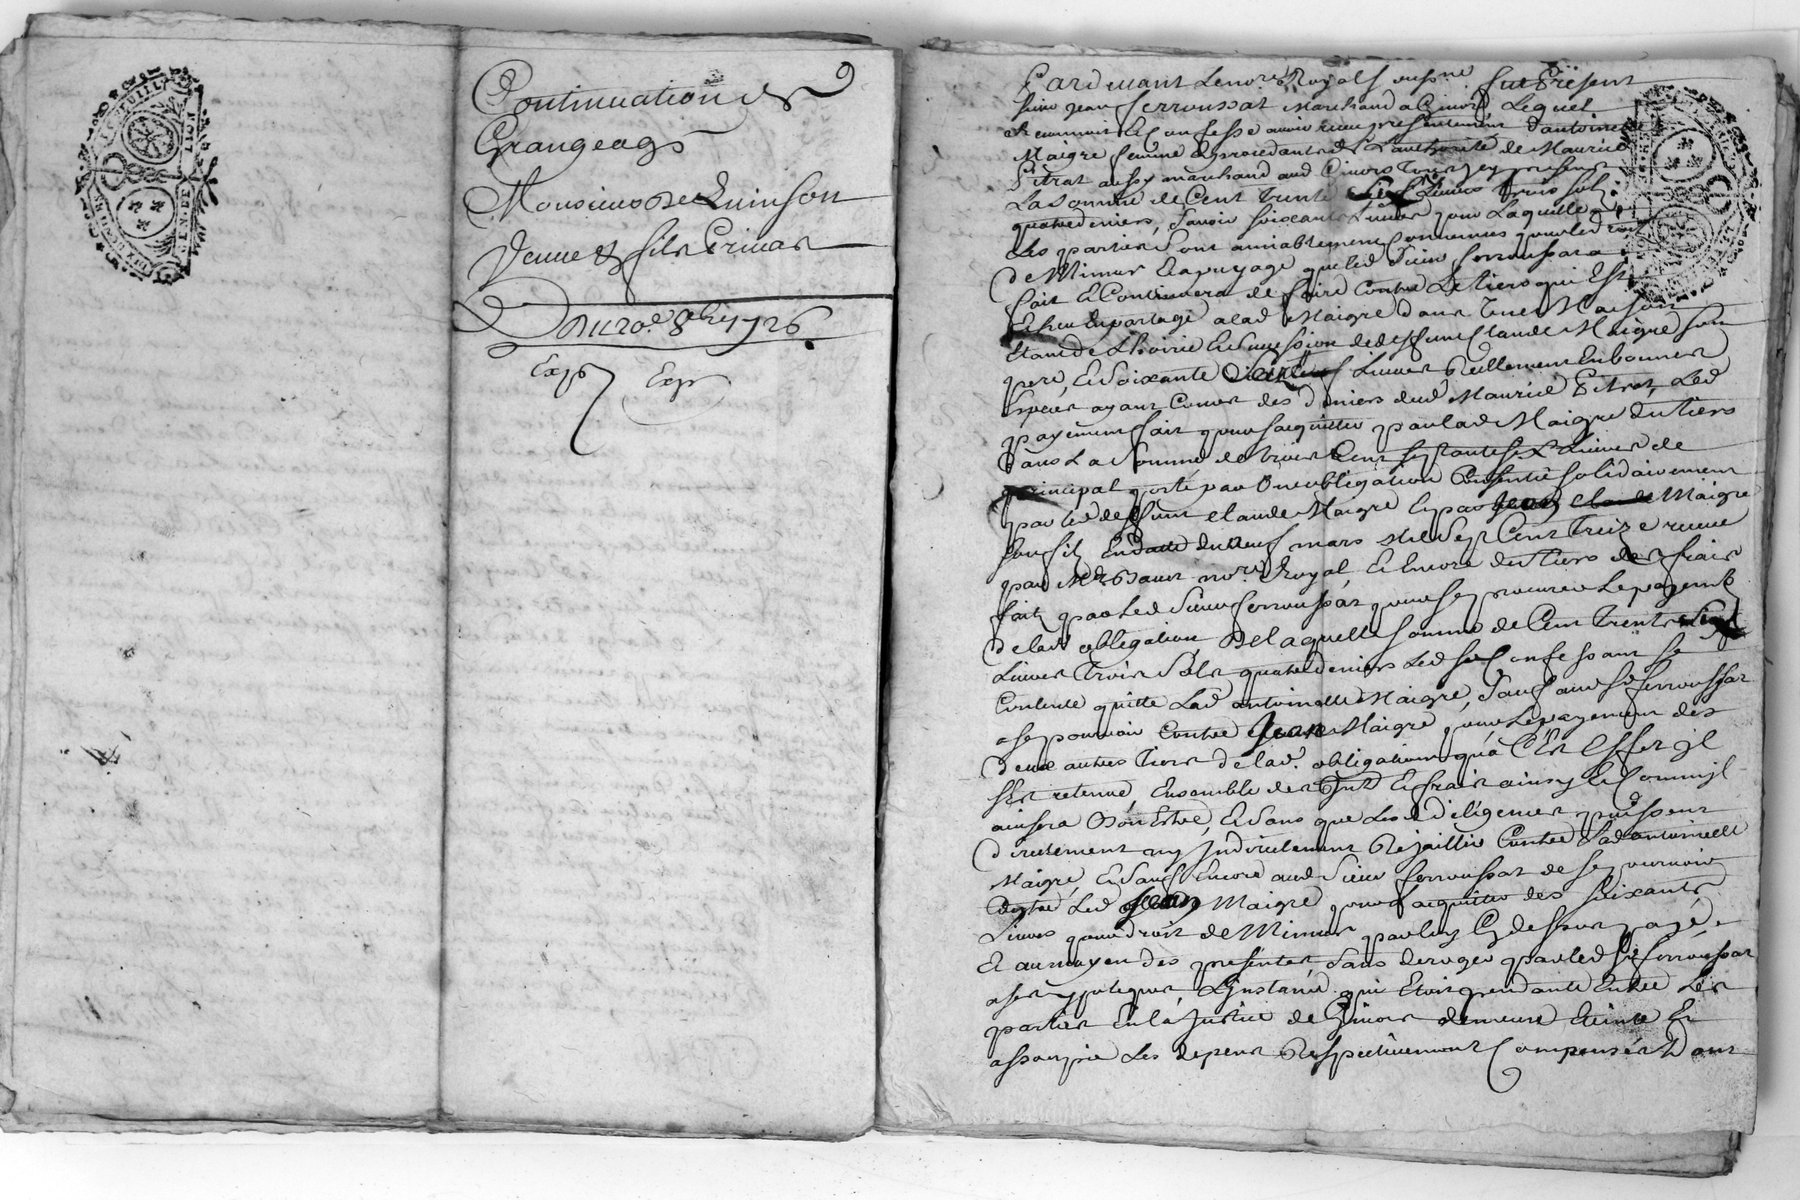 9
Continuation de
Grangeage
Monsieur De Quinson
Veuve & fils Crimar
Du 20e 8bre 1726.
Exp Exp
GENERALITE DE LION
Pardevant Le nore Royal sousne fut Present
sieur Jean ferroussat Marchand a Givors Lequel
reconnoit Et confesse avoir receu presentement d'antoinette
Maigre femme et procedante de L'authorité de Maurice
Pitrat aussy marchand aud Givors present
La somme de Cent trente six Livres trois sols
quatre deniers, Savoir soixante Livres pour Laquelle
Les parties sont amiablement Convenues pour le droit
de Mimur Et apuyage que led Sieur ferroussat a
fait Et Continuera de faire Contre Le tiers qui Est
Escheu En partage a lad Maigre dans Une Maison
Etant de L'hoirie Et Succession dud deffunt Claude Maigre son
pere, Et Soixante Livres Reellement En bonnes
Especes ayant Cours des deniers dud Maurice Pitrat, Led
payement fait pour s'acquitter par lad Maigre du tiers
dans La Somme de trois Cent septante six Livres de
principal porté par Une obligation Consentie solidairement
par led deffunt Claude Maigre Et par Jean Claude Maigre
son fils En datte du neuf mars mil Sept Cent Treize receue
par Me Bauer nore Royal, Et Encore du tiers des frais
faits par Led Sieur ferroussat pour se procurer Le payement
de lad obligation De laquelle somme de Cent Trente six
Livres Trois Sols quatre deniers Led sr Confessant se
Contente quitte Lad antoinette Maigre, Sauf aud sr ferroussat
a se pourvoir Contre Jean Maigre pour Le payement des
deux autres tiers de lad. obligation qu'a Cet Effet il
s'est retenue, Ensemble des Intts Et frais ainsy Et Comm'il
avisera bon Estre, Et Sans que Lesd diligences puissent
directement ny Indirectement Rejaillir Contre Lad antoinette
Maigre, Et Sauf Encore aud Sieur ferroussat de se pourvoir
Contre Led Jean Maigre pour s'acquitter des soixante
Livres pour droit de Mimur par luy Cy dessus payé,
Et au moyen des presentes, Sans deroger par led sr ferroussat
a ses ypoteques, L'Instance qui Etoit pendante Entre Les
parties En la Justice de Givors demeure Eteinte Et
assoupie Les depens Respectivement Compensés Dont